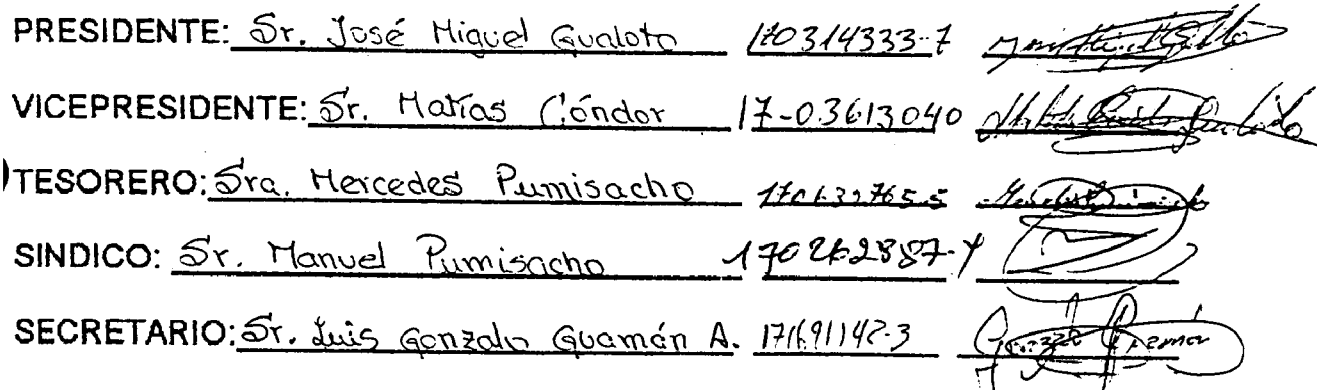 PRESIDENTE: Sr. José Miguel Gualoto 170314333-7
VICEPRESIDENTE: Sr. Matías Cóndor 17-03613040
TESORERO: Sra. Mercedes Pumisacho
SINDICO: Sr. Manuel Pumisacho
SECRETARIO: Sr. Luis Gonzalo Guamán A.